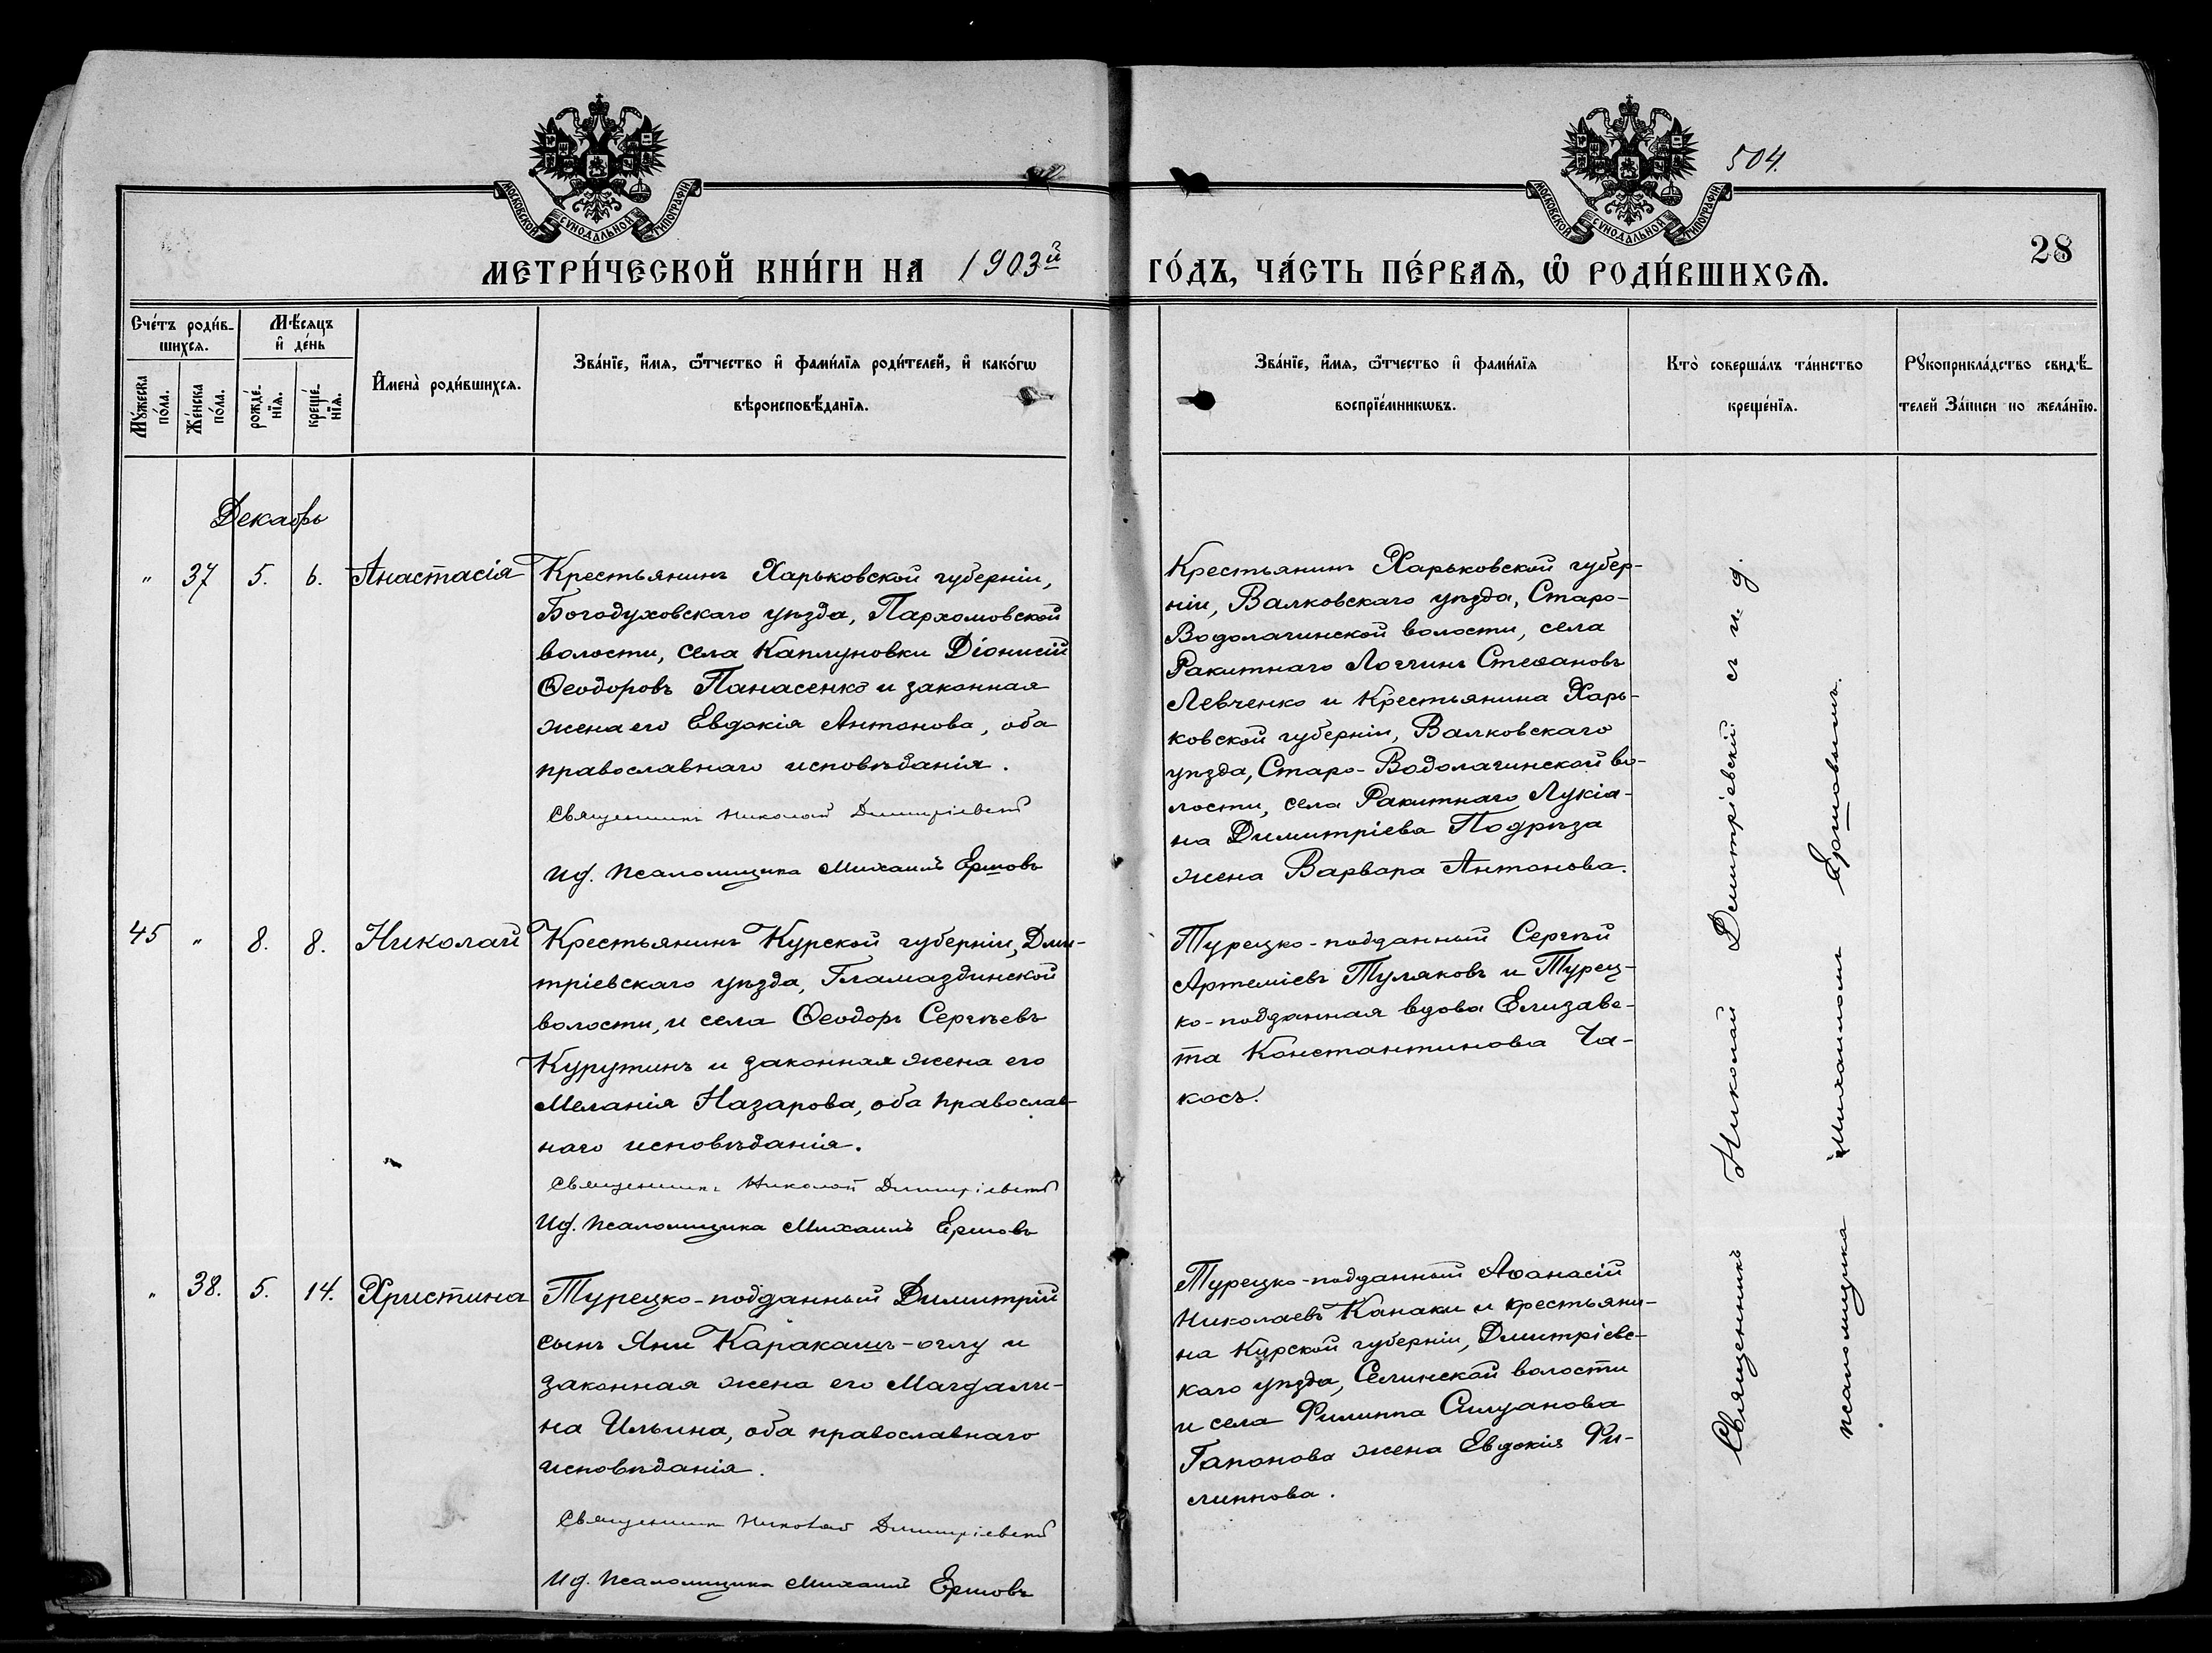 504.
28
МОСКОВСКОЙ СѴНОДАЛЬНОЙ ТИПОГРАФІИ
МОСКОВСКОЙ СѴНОДАЛЬНОЙ ТИПОГРАФІИ
МЕТРИ́ЧЕСКОЙ КНИ́ГИ НА 1903й ГО́ДЪ, ЧА́СТЬ ПЕ́РВАѦ, Ѡ РОДИ́ВШИХСѦ.
Сче́тъ роди́в-
шихсѧ.
Мѣ́сѧцъ
и҆ де́нь
Мꙋ́жеска
по́ла.
Же́нска
по́ла.
рожде́-
нїѧ.
креще́-
нїѧ.
И҆мена̀ роди́вшихсѧ.
Зва́нїе, и҆́мѧ, ѻ҆́тчество и҆ фами́лїѧ роди́телей, и҆ како́гѡ
вѣроисповѣ́данїѧ.
Зва́нїе, и҆́мѧ, ѻ҆́тчество и҆ фами́лїѧ
воспрїе́мникѡвъ.
Кто̀ соверша́лъ та́инство
креще́нїѧ.
Рꙋкоприкла́дство свидѣ́-
телей за́писи по жела́нїю.
Декабрь
" 37 5. 6. Анастасія
Крестьянинъ Харьковской губерніи,
Богодуховскаго уѣзда, Пархомовской
волости, села Каплуновки Діонисій
Ѳеодоровъ Панасенко и законная
жена его Евдокія Антонова, оба
православнаго исповѣданія.
Священникъ Николай Димитріевскій
И д. псаломщика Михаилъ Ершовъ
Крестьянинъ Харьковской губер-
ніи, Валковскаго уѣзда, Старо-
Водолагинской волости, села
Ракитнаго Логгинъ Стефановъ
Левченко и Крестьянина Харь-
ковской губерніи, Валковскаго
уѣзда, Старо-Водолагинской во-
лости, села Ракитнаго Лукіа-
на Димитріева Подрѣза
жена Варвара Антонова.
45 " 8. 8. Николай
Крестьянинъ Курской губерніи, Дми-
тріевскаго уѣзда, Гламаздинской
волости, и села Ѳеодоръ Сергѣевъ
Курутинъ и законная жена его
Меланія Назарова, оба православ-
наго исповѣданія.
Священникъ Николай Димитріевскій
И д. псаломщика Михаилъ Ершовъ
Турецко-подданный Сергѣй
Артеміевъ Туляковъ и Турец-
ко-подданная вдова Елизаве-
та Константинова Ча-
косъ.
" 38. 5. 14. Христина
Турецко-подданный Димитрій
сынъ Яни Каракашъ-оглу и
законная жена его Магдали-
на Ильина, оба православнаго
исповѣданія.
Священникъ Николай Димитріевскій
И д. псаломщика Михаилъ Ершовъ
Турецко-подданный Аѳанасій
Николаевъ Канаки и крестьяни-
на Курской губерніи, Дмитріевс-
каго уѣзда, Селинской волости
и села Филиппа Силуанова
Гапонова жена Евдокія Фи-
липпова.
Священникъ Николай Димитріевскій съ и. д.
псаломщика Михаиломъ Ершовымъ.